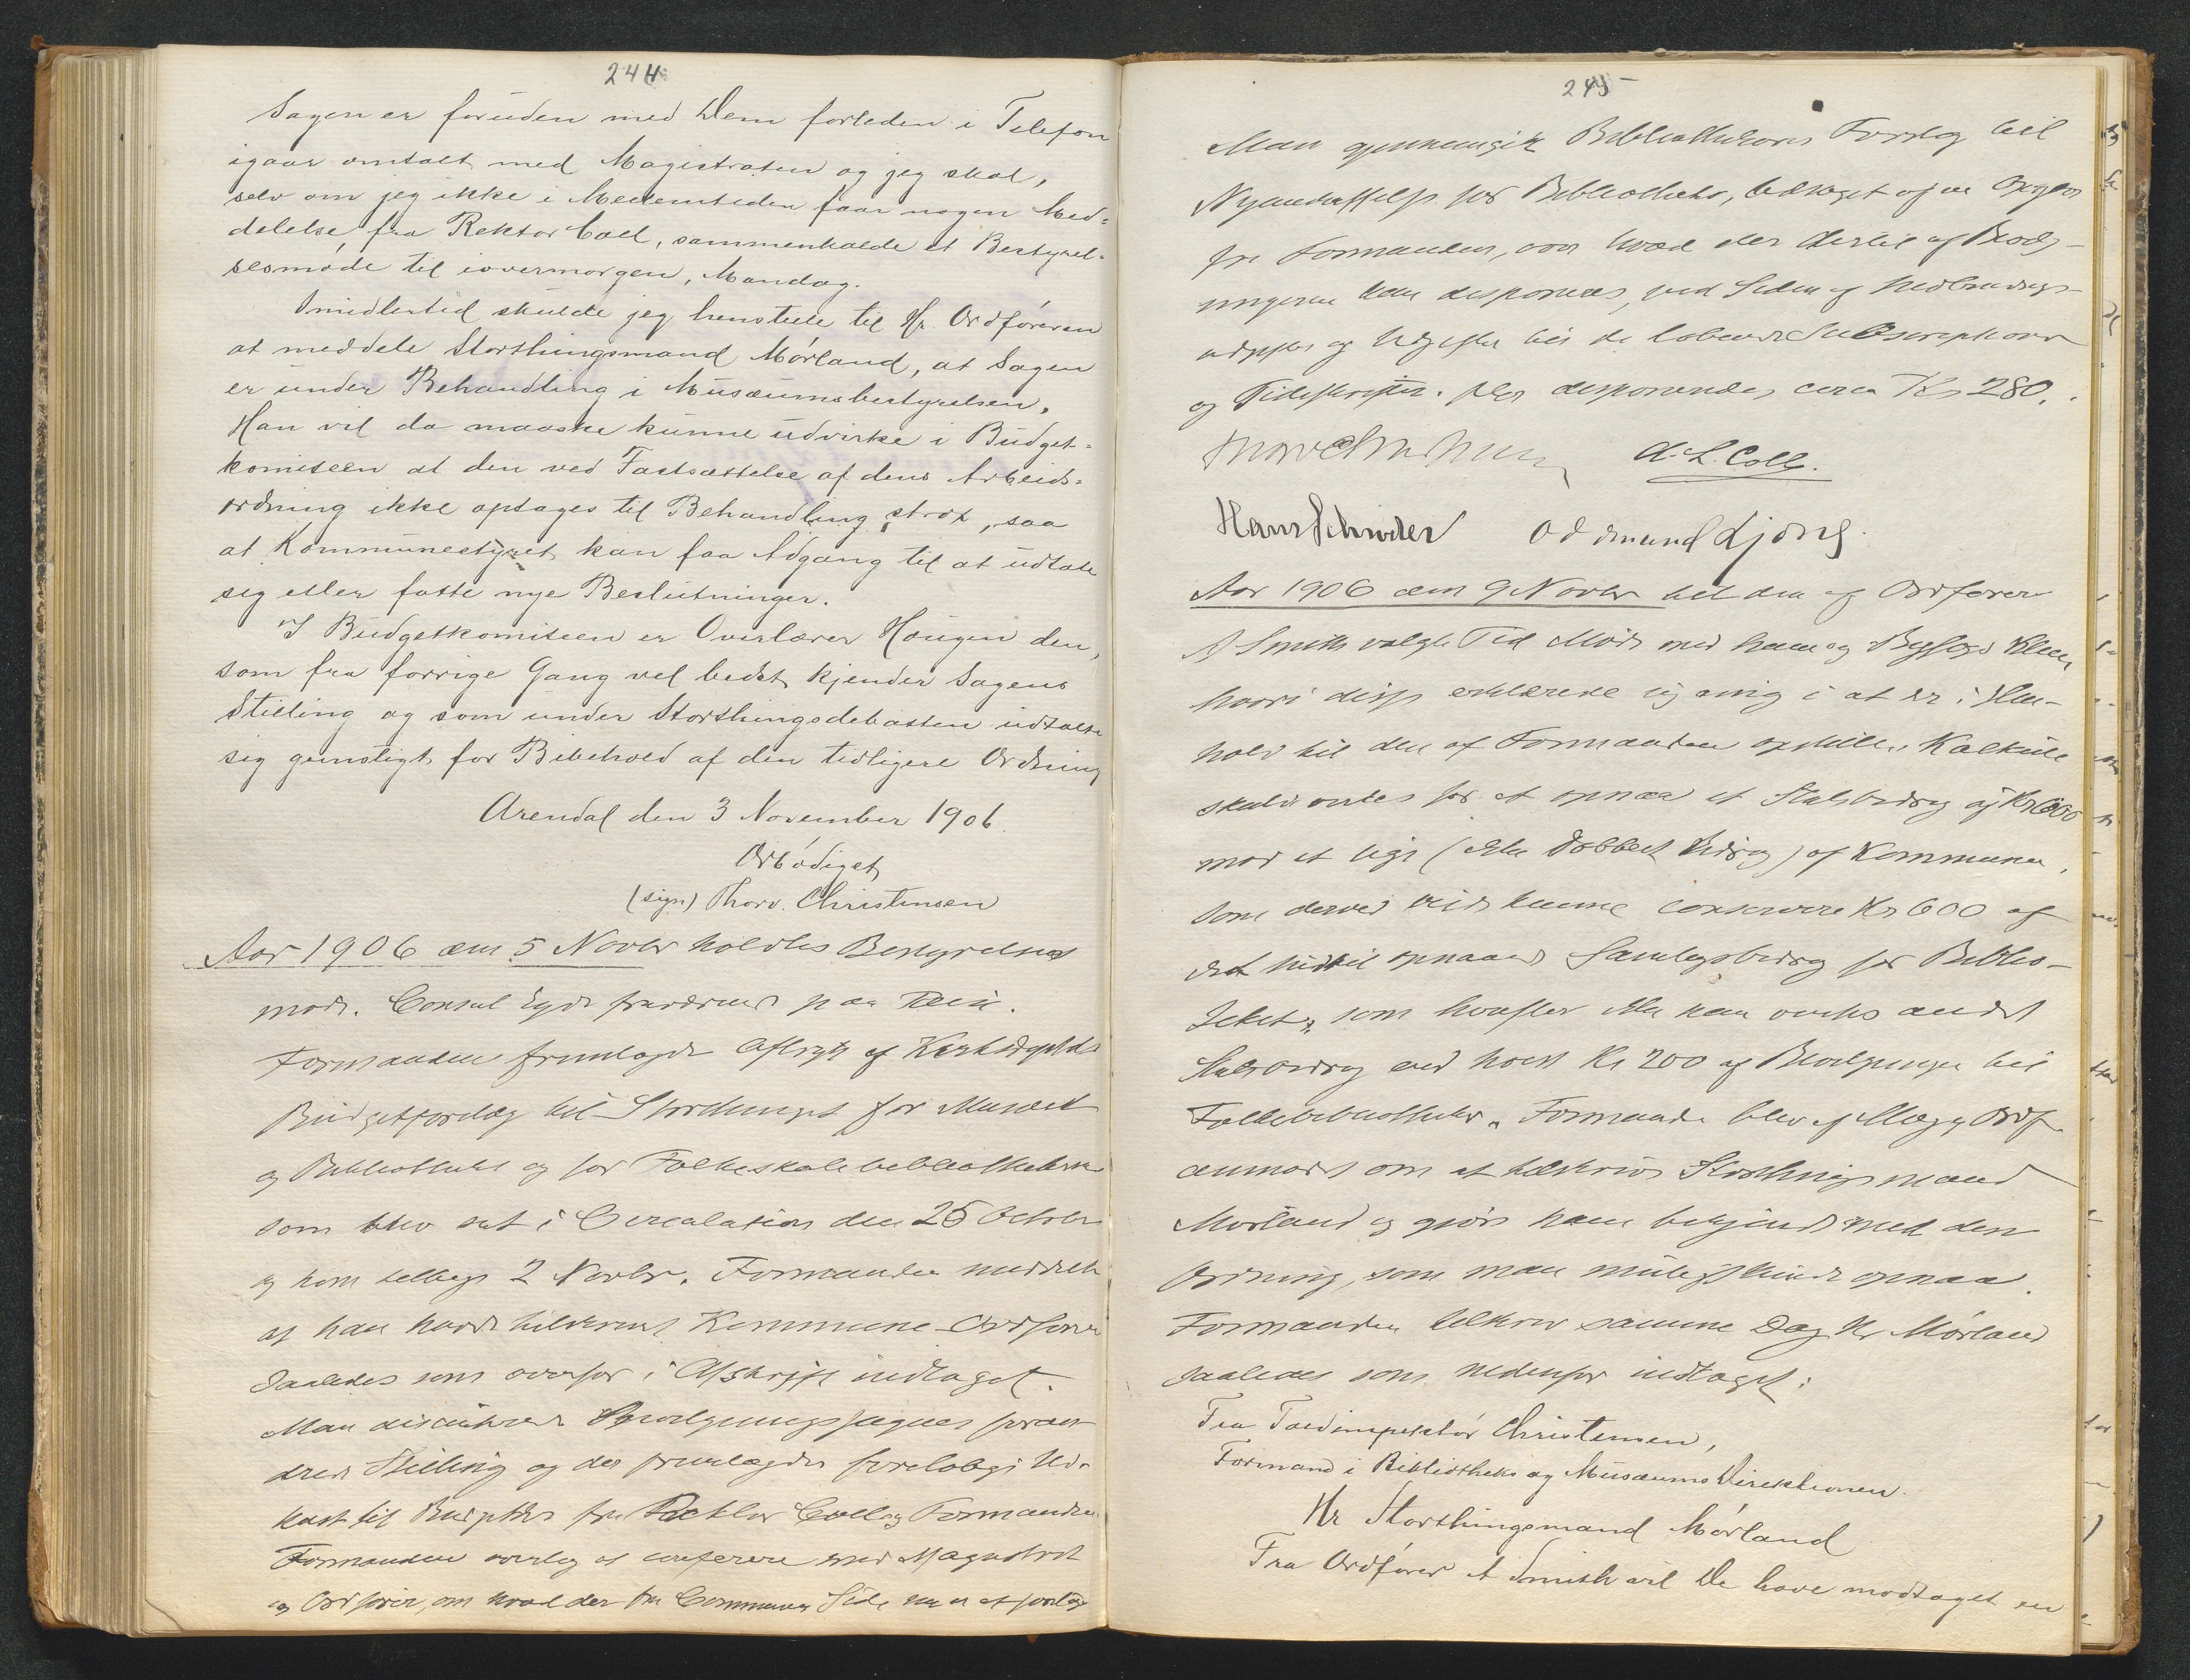 244
Sagen er foruden med Dem forleden i Telefon
igaar omtalt med Magistraten og jeg skal,
selv om jeg ikke i Mellemtiden faar nogen Med=
delelse fra Rektor Coll, sammenkalde et Bestyrel=
sesmöde til iovermorgen, Mandag.
Imidlertid skulde jeg henstille til Hr. Ordföreren
at meddele Storthingsmand Mörland, at Sagen
er under Behandling i Musæumsbestyrelsen,
Han vil da maaske kunne udvirke i Budget=
komiteen at den ved Fastsættelse af dens Arbeids=
ordning ikke optages til Behandling strax, saa
at Kommunestyret kan faa Adgang til at udtale
sig eller fatte nye Beslutninger.
I Budgetkomiteen er Overlærer Hougen den,
som fra forrige Gang vel bedst kjender Sagens
Stilling og som under Storthingsdebatten udtalte
sig gunstigt for Bibehold af den tidligere Ordning
Arendal den 3 November 1906.
Ærbödigst
(sign) Thorv. Christensen
Aar 1906 den 5 Novbr holdtes Bestyrelses
møde. Consul Eyde fraværende paa Reise.
Formanden fremlagde Afskrift af
Budgetforslag til Storthinget for Musæet
og Bibliotheket og for Folkeskolebibliothekerne
som blev sat i Circulation den 25 Octobr
og kom tilbage 2 Novbr. Formanden meddelte
at han havde tilskrevet Kommune-Ordförer
saaledes som ovenfor i Afskrift indtaget.
Man discuterede Bevilgningssagens foran
drede Stilling og der fremlagdes foreløbigt Ud-
kast til Budgetter fra Rektor Coll og Formanden
Formanden overlod at conferere med Magistrat
og Ordförer, om hvad der fra Communens Side var at foretage
245
Man gjennemgik Bibliothekarens Forslag til
Nyanskaffelse for Bibliotheket, ledsaget af en Opgave
fra Formanden, over hvad der dertil af Bevilg-
ningerne kan disponeres, ved Siden af
udgifter og Udgifter til de løbende Subscriptioner
og Tidsskrifter. disponeredes circa Kr 280,.
Thorv Christensen A. L. Coll.
Hans Schrøder Oddmund Ljone
Aar 1906 den 9 Novbr til den af Ordfører
A Smith valgte Tid Møde med ham og Bygfogd Klem
hvori disse erklærede sig enig i at der i Hen-
hold til den af Formanden opstillede Kalkule
skulde virkes for at opnaa et Statsbidrag af Kr 600
mod et lige (eller dobbelt Bidrag) af Kommunen,
som derved vilde kunne conservere Kr 600 af
det hidtil opnaaede Samlagsbidrag for Biblio-
theket, som hverfter ikke kan ventes andet
Statsbidrag end høist Kr 200 af Bevilgningen til
Folkebibliotheker. Formanden blev af Mag og Ordf.
anmodet om at tilskrive Storthingsmand
Mørland og gjøre ham bekjendt med den
Ordning, som man muligt kunde opnaa.
Formanden tilskrev samme Dag Hr Mörland
saaledes som nedenfor indtaget:
Fra Toldinspektör Christensen,
Formand i Bibliotheks og Musæums Direktionen.
Hr Storthingsmand Mörland
Fra Ordförer A Smith vil De have modtaget en